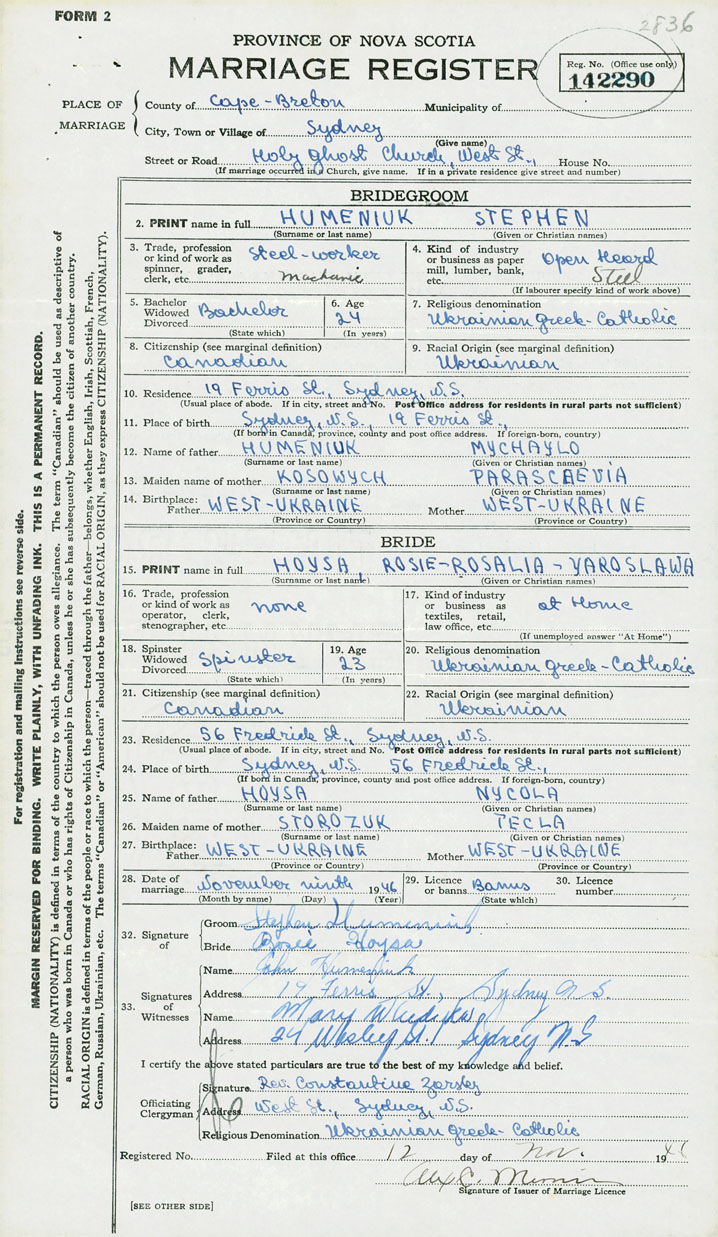 FORM 2
2836
PROVINCE OF NOVA SCOTIA
MARRIAGE REGISTER
Reg. No. (Office use only)
142290
PLACE OF MARRIAGE
County of Cape-Breton Municipality of
City, Town or Village of Sydney
(Give name)
Street or Road Holy Ghost Church, West St., House No.
(If marriage occurred in a Church, give name. If in a private residence give street and number)
BRIDEGROOM
2. PRINT name in full HUMENIUK STEPHEN
(Surname or last name) (Given or Christian names)
3. Trade, profession or kind of work as spinner, grader, clerk, etc. Steel-worker Machanic
4. Kind of industry or business as paper mill, lumber, bank, etc. Open Heard Steel
(If labourer specify kind of work above)
5. Bachelor Widowed Divorced Bachelor
(State which)
6. Age 24
(In years)
7. Religious denomination
Ukrainian Greek-Catholic
8. Citizenship (see marginal definition)
Canadian
9. Racial Origin (see marginal definition)
Ukrainian
10. Residence 19 Ferris St., Sydney, N.S.
(Usual place of abode. If in city, street and No. Post Office address for residents in rural parts not sufficient)
11. Place of birth Sydney, N.S., 19 Ferris St.,
(If born in Canada, province, county and post office address. If foreign-born, country)
12. Name of father HUMENIUK MYCHAYLO
(Surname or last name) (Given or Christian names)
13. Maiden name of mother KOSOWYCH PARASCAEVIA
(Surname or last name) (Given or Christian names)
14. Birthplace: Father WEST-UKRAINE Mother WEST-UKRAINE
(Province or Country) (Province or Country)
BRIDE
15. PRINT name in full HOYSA, ROSIE-ROSALIA-YAROSLAWA
(Surname or last name) (Given or Christian names)
16. Trade, profession or kind of work as operator, clerk, stenographer, etc. none
17. Kind of industry or business as textiles, retail, law office, etc. at Home
(If unemployed answer "At Home")
18. Spinster Widowed Divorced Spinster
(State which)
19. Age 23
(In years)
20. Religious denomination
Ukrainian Greek-Catholic
21. Citizenship (see marginal definition)
Canadian
22. Racial Origin (see marginal definition)
Ukrainian
23. Residence 56 Fredrick St., Sydney, N.S.
(Usual place of abode. If in city, street and No. Post Office address for residents in rural parts not sufficient)
24. Place of birth Sydney, N.S. 56 Fredrick St.,
(If born in Canada, province, county and post office address. If foreign-born, country)
25. Name of father HOYSA NYCOLA
(Surname or last name) (Given or Christian names)
26. Maiden name of mother STOROZUK TECLA
(Surname or last name) (Given or Christian names)
27. Birthplace: Father WEST-UKRAINE Mother WEST-UKRAINE
(Province or Country) (Province or Country)
28. Date of marriage November ninth 1946
(Month by name) (Day) (Year)
29. Licence or banns Banns
(State which)
30. Licence number
32. Signature of
Groom Stephen Humeniuk
Bride Rosie Hoysa
33. Signatures of Witnesses
Name John Humeniuk
Address 19 Ferris St, Sydney N.S.
Name Mary
Address 24 Wesley St. Sydney N.S
I certify the above stated particulars are true to the best of my knowledge and belief.
Officiating Clergyman
Signature Rev. Constantine
Address West St., Sydney, N.S.
Religious Denomination Ukrainian Greek-Catholic
Registered No. Filed at this office 12 day of Nov. 194
Alex C.
Signature of Issuer of Marriage Licence
[SEE OTHER SIDE]
For registration and mailing instructions see reverse side.
MARGIN RESERVED FOR BINDING. WRITE PLAINLY, WITH UNFADING INK. THIS IS A PERMANENT RECORD.
CITIZENSHIP (NATIONALITY) is defined in terms of the country to which the person owes allegiance. The term "Canadian" should be used as descriptive of
a person who was born in Canada or who has rights of Citizenship in Canada, unless he or she has subsequently become the citizen of another country.
RACIAL ORIGIN is defined in terms of the people or race to which the person—traced through the father—belongs, whether English, Irish, Scottish, French,
German, Russian, Ukrainian, etc. The terms "Canadian" or "American" should not be used for RACIAL ORIGIN, as they express CITIZENSHIP (NATIONALITY).